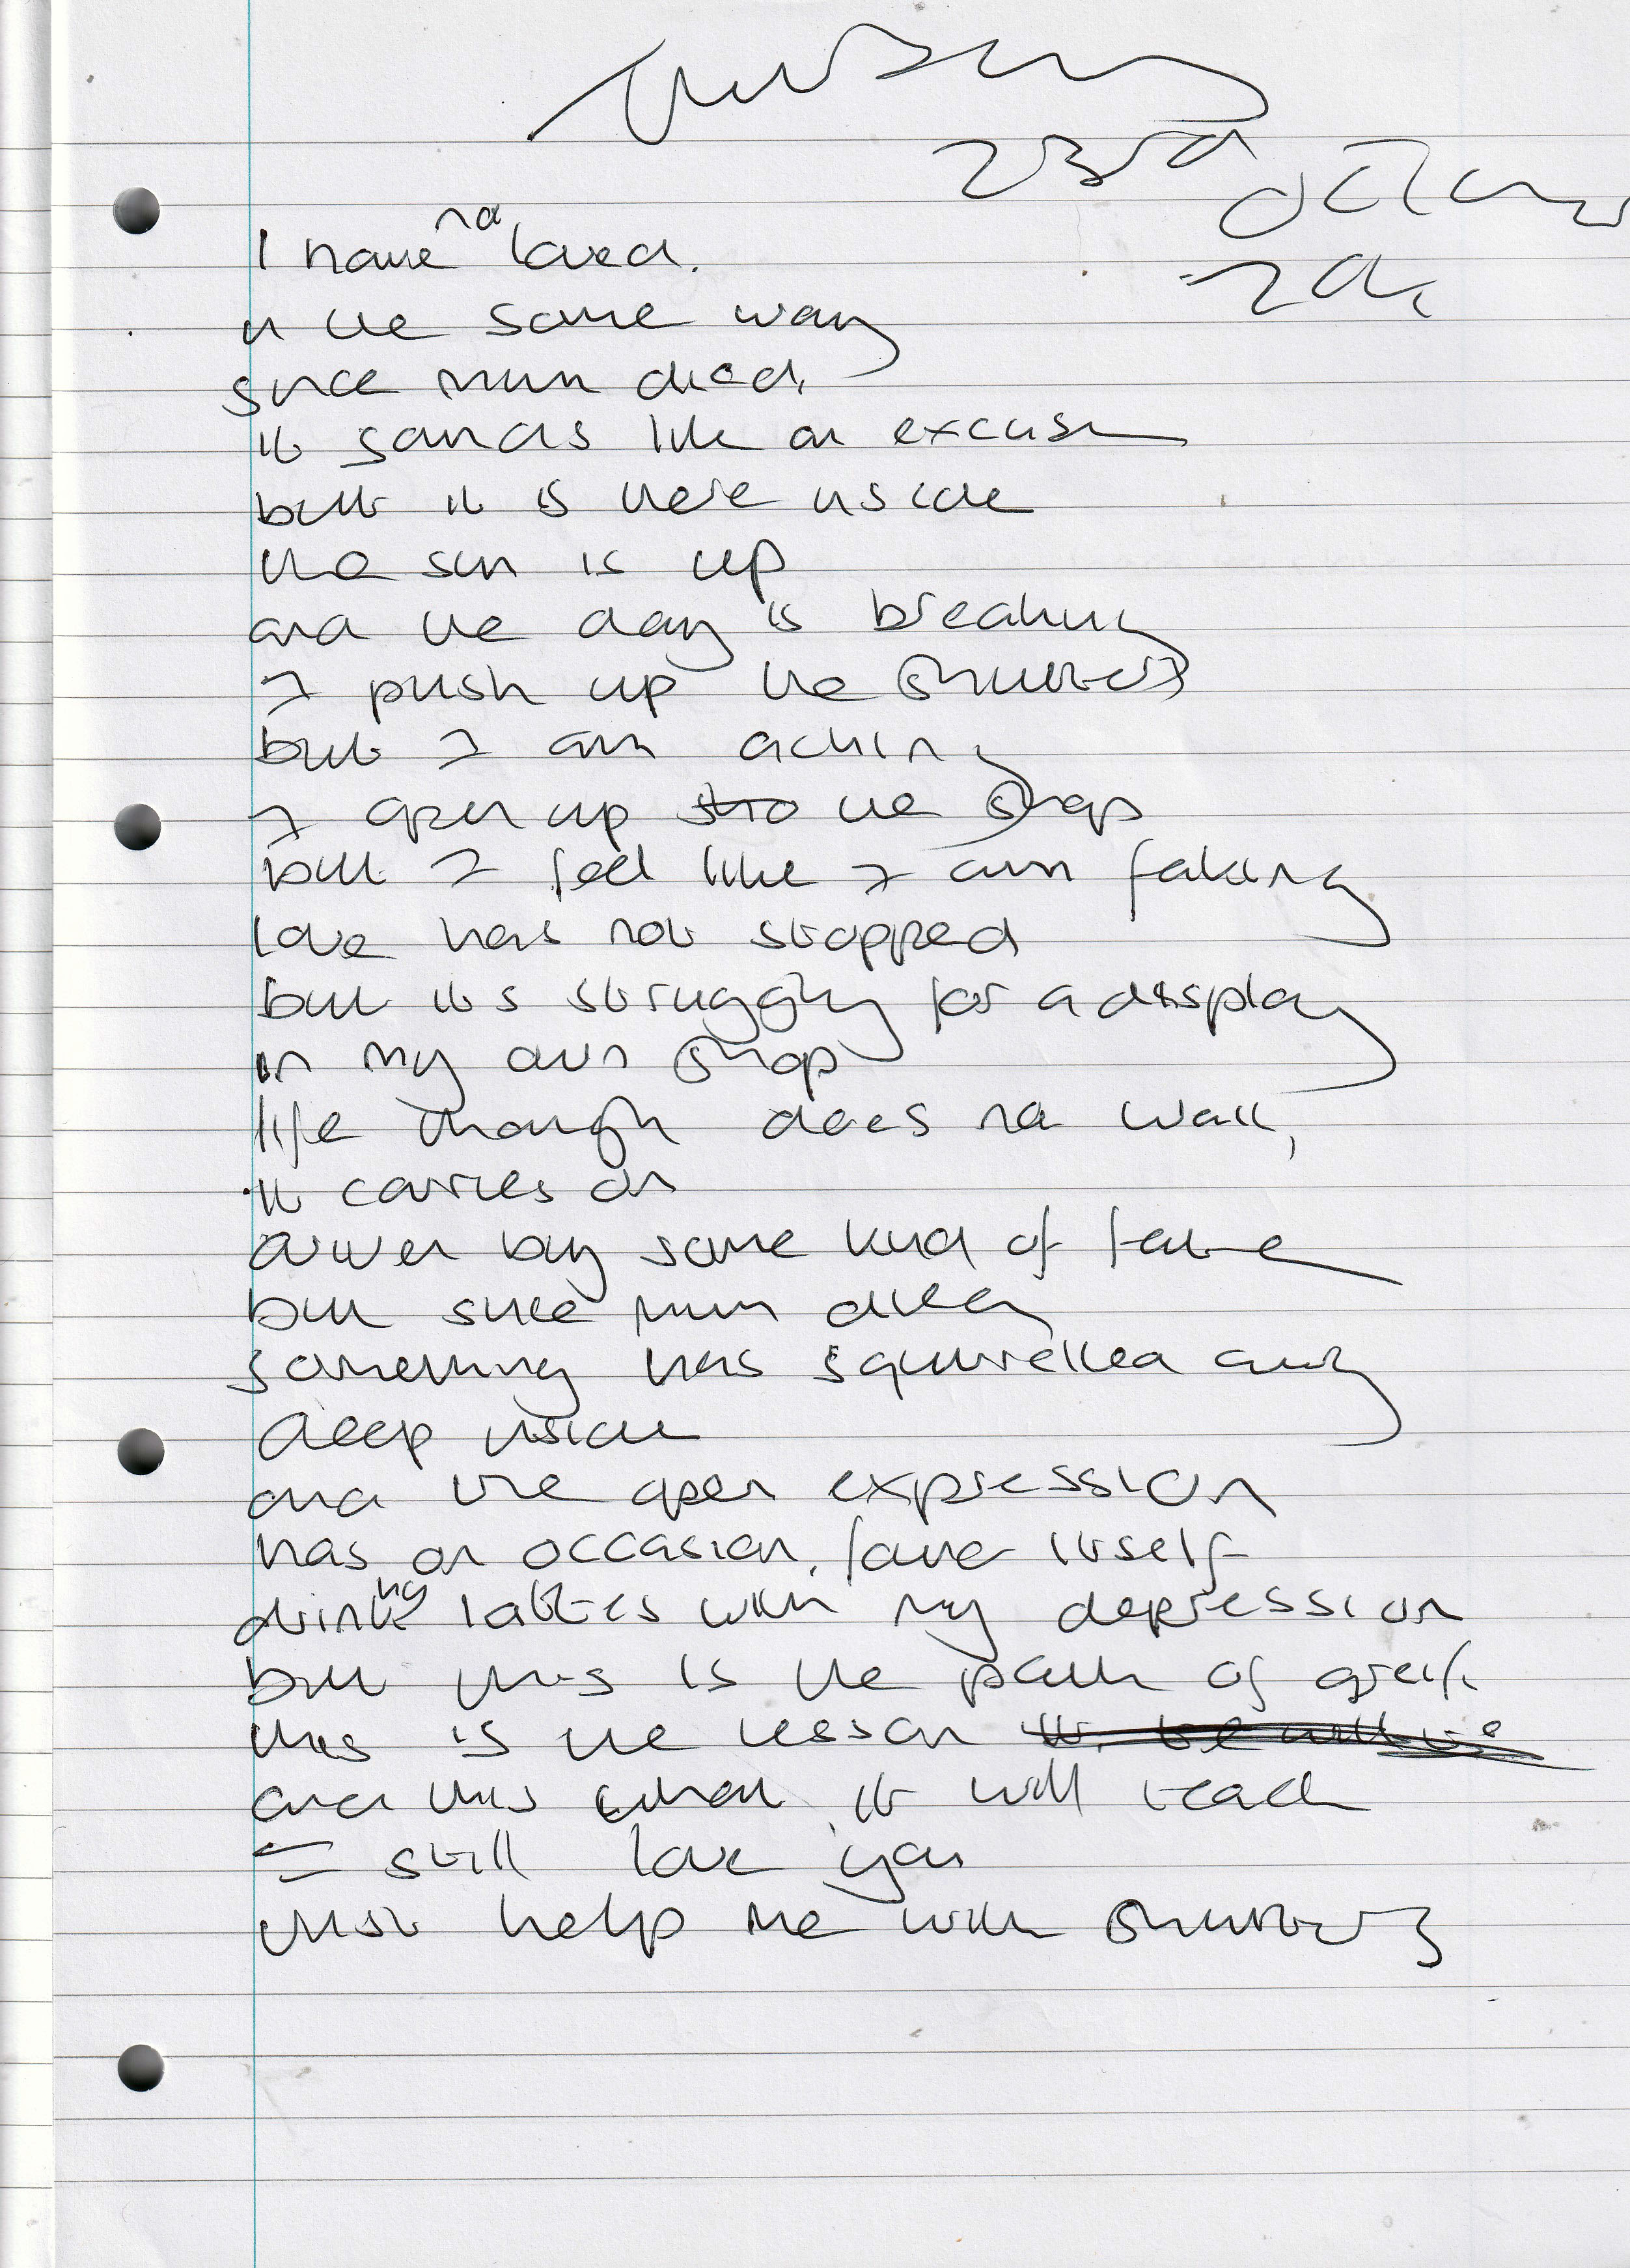 Thursday
23rd
October
I have not loved.
in the same way
since mum died.
it sounds like an excuse
but it is here inside
the sun is up
and the day is breaking
I push up the shutters
but I am aching
I open up the shop
but I feel like I am faking
love has not stopped
but its struggling for a display
in my own shop
life though does not wait,
it carries on
driven by some kind of fate
but since mum died
something has squirelled away
deep inside
and the open expression
has on occasion, found itself
drinking lattes with my depression
but this is the path of greif.
this is the lesson
and this what it will teach
I still love you
just help me with shutters